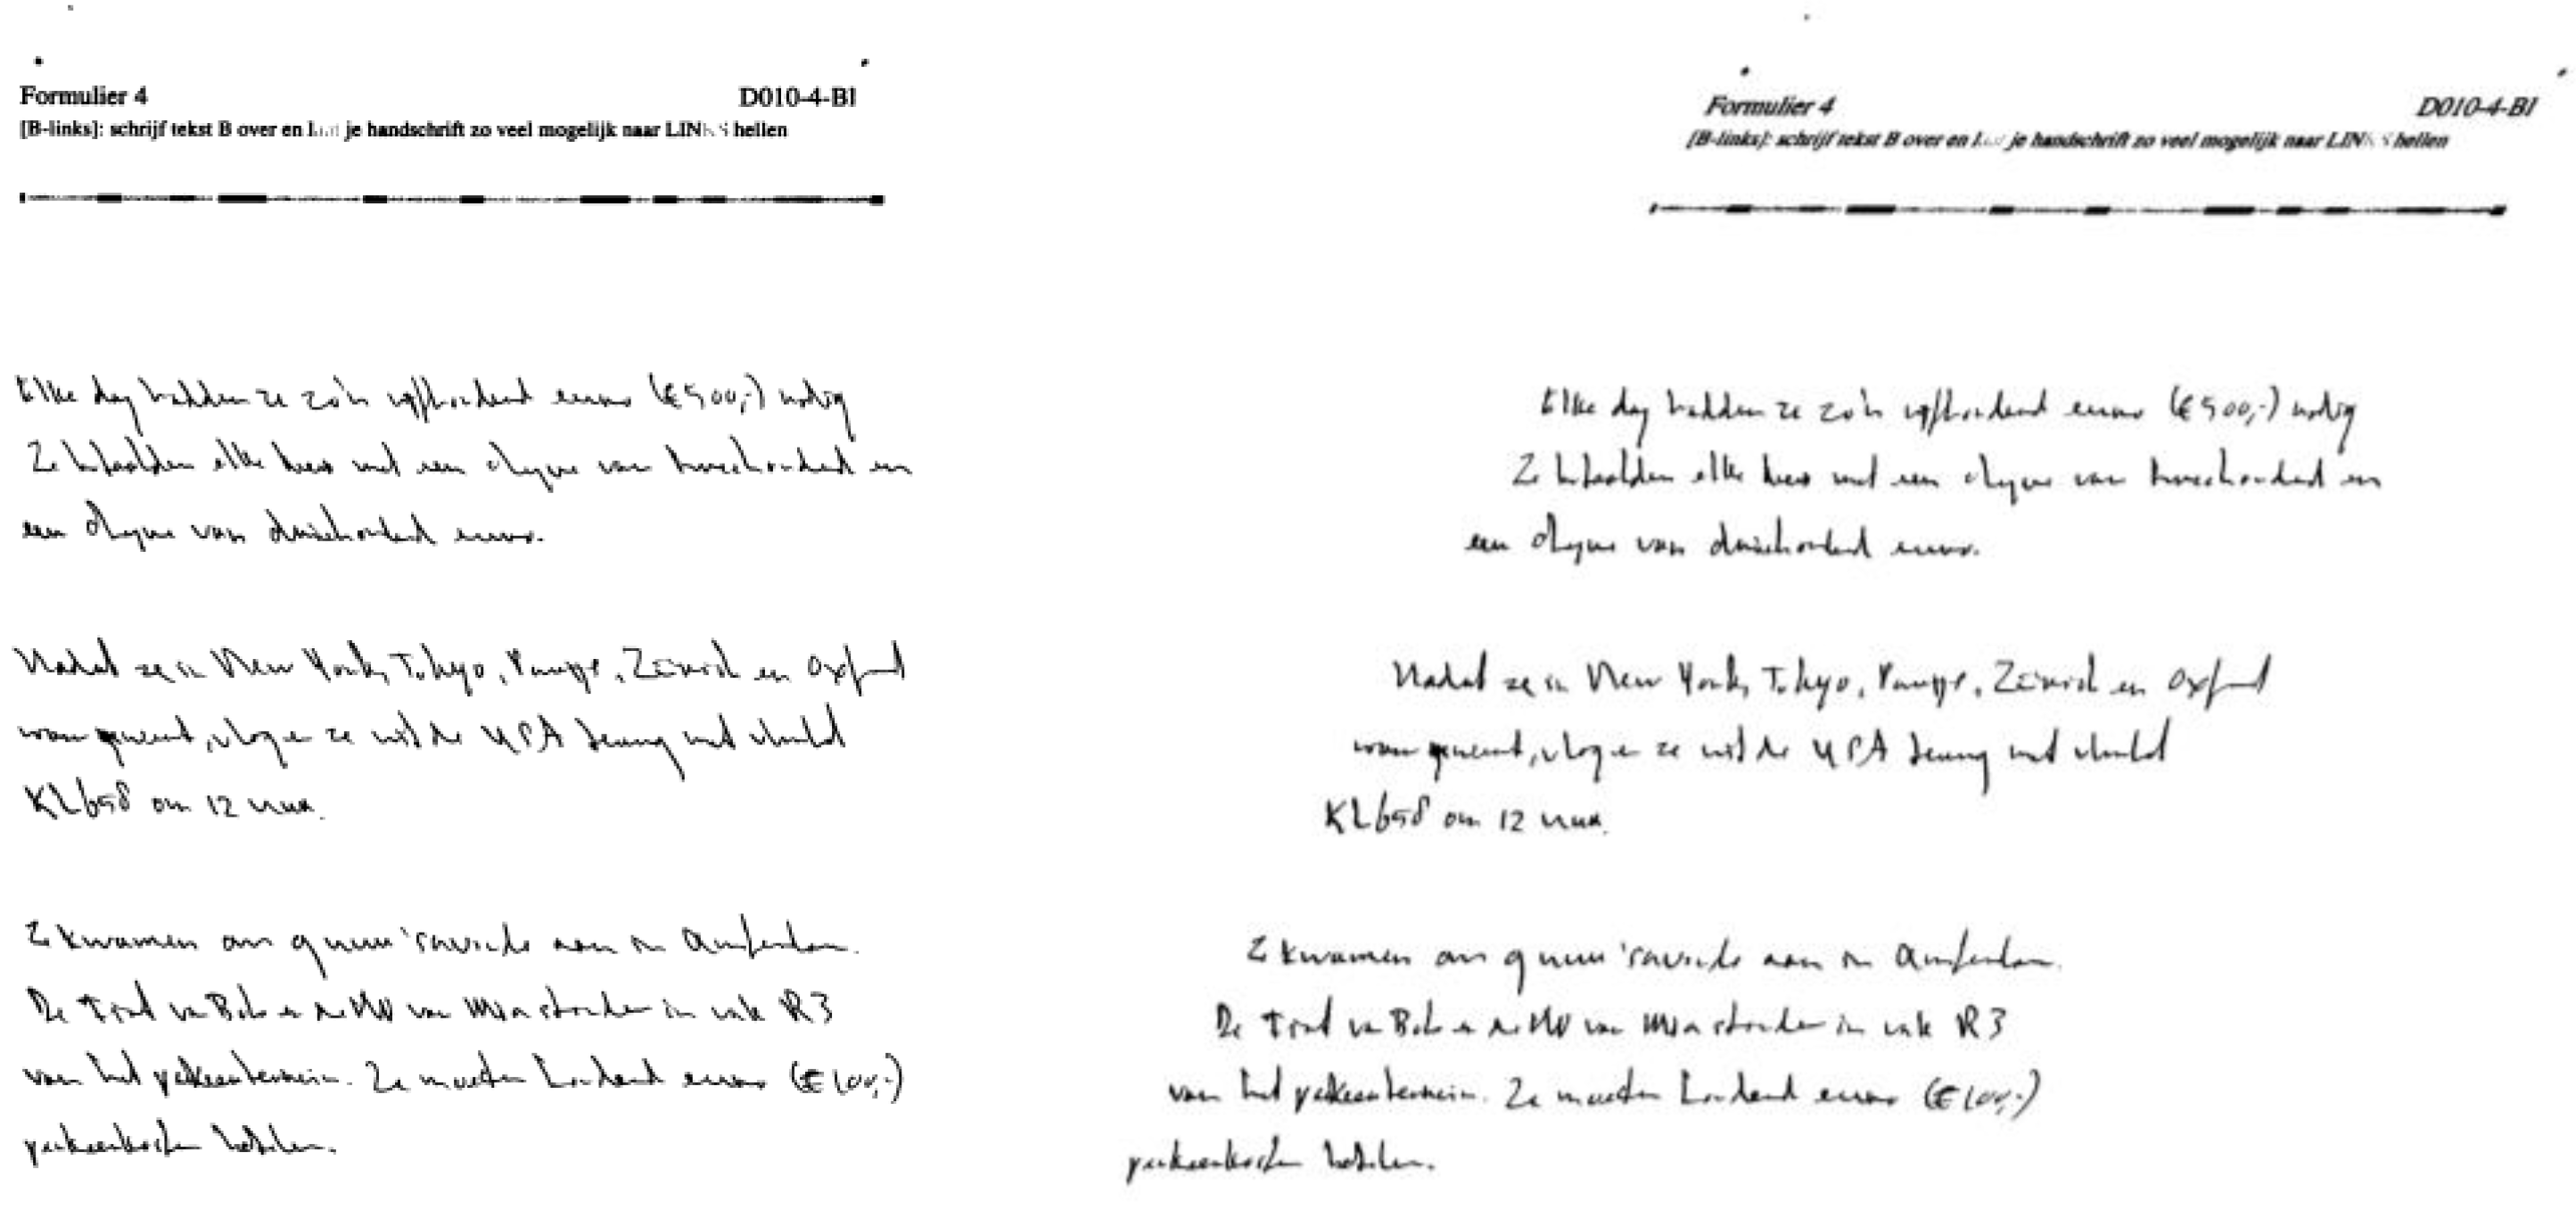 Formulier 4
D010-4-BI
[B-links]: schrijf tekst B over en je handschrift zo veel mogelijk naar LINKS hellen
Elke dag hadden ze zo'n vijfhonderd euro (€ 500,-) nodig
Ze betaalden elke keer met een cheque van tweehonderd en
een cheque van driehonderd euro.
Nadat ze in New York, Tokyo, Parijs, Zürich en Oxford
waren geweest, vlogen ze uit de USA terug met vlucht
KL658 om 12 uur.
Ze kwamen om 9 uur 's avonds aan in Amsterdam.
De Fiat van Bob en de VW van in vak R3
van het parkeerterrein. Ze moesten honderd euro (€ 100,-)
parkeerkosten betalen.
Formulier 4
D010-4-BI
[B-links]: schrijf tekst B over en je handschrift zo veel mogelijk naar LINKS hellen
Elke dag hadden ze zo'n vijfhonderd euro (€ 500,-) nodig
Ze betaalden elke keer met een cheque van tweehonderd en
een cheque van driehonderd euro.
Nadat ze in New York, Tokyo, Parijs, Zürich en Oxford
waren geweest, vlogen ze uit de USA terug met vlucht
KL658 om 12 uur.
Ze kwamen om 9 uur 's avonds aan in Amsterdam.
De Fiat van Bob en de VW van in vak R3
van het parkeerterrein. Ze moesten honderd euro (€ 100,-)
parkeerkosten betalen.